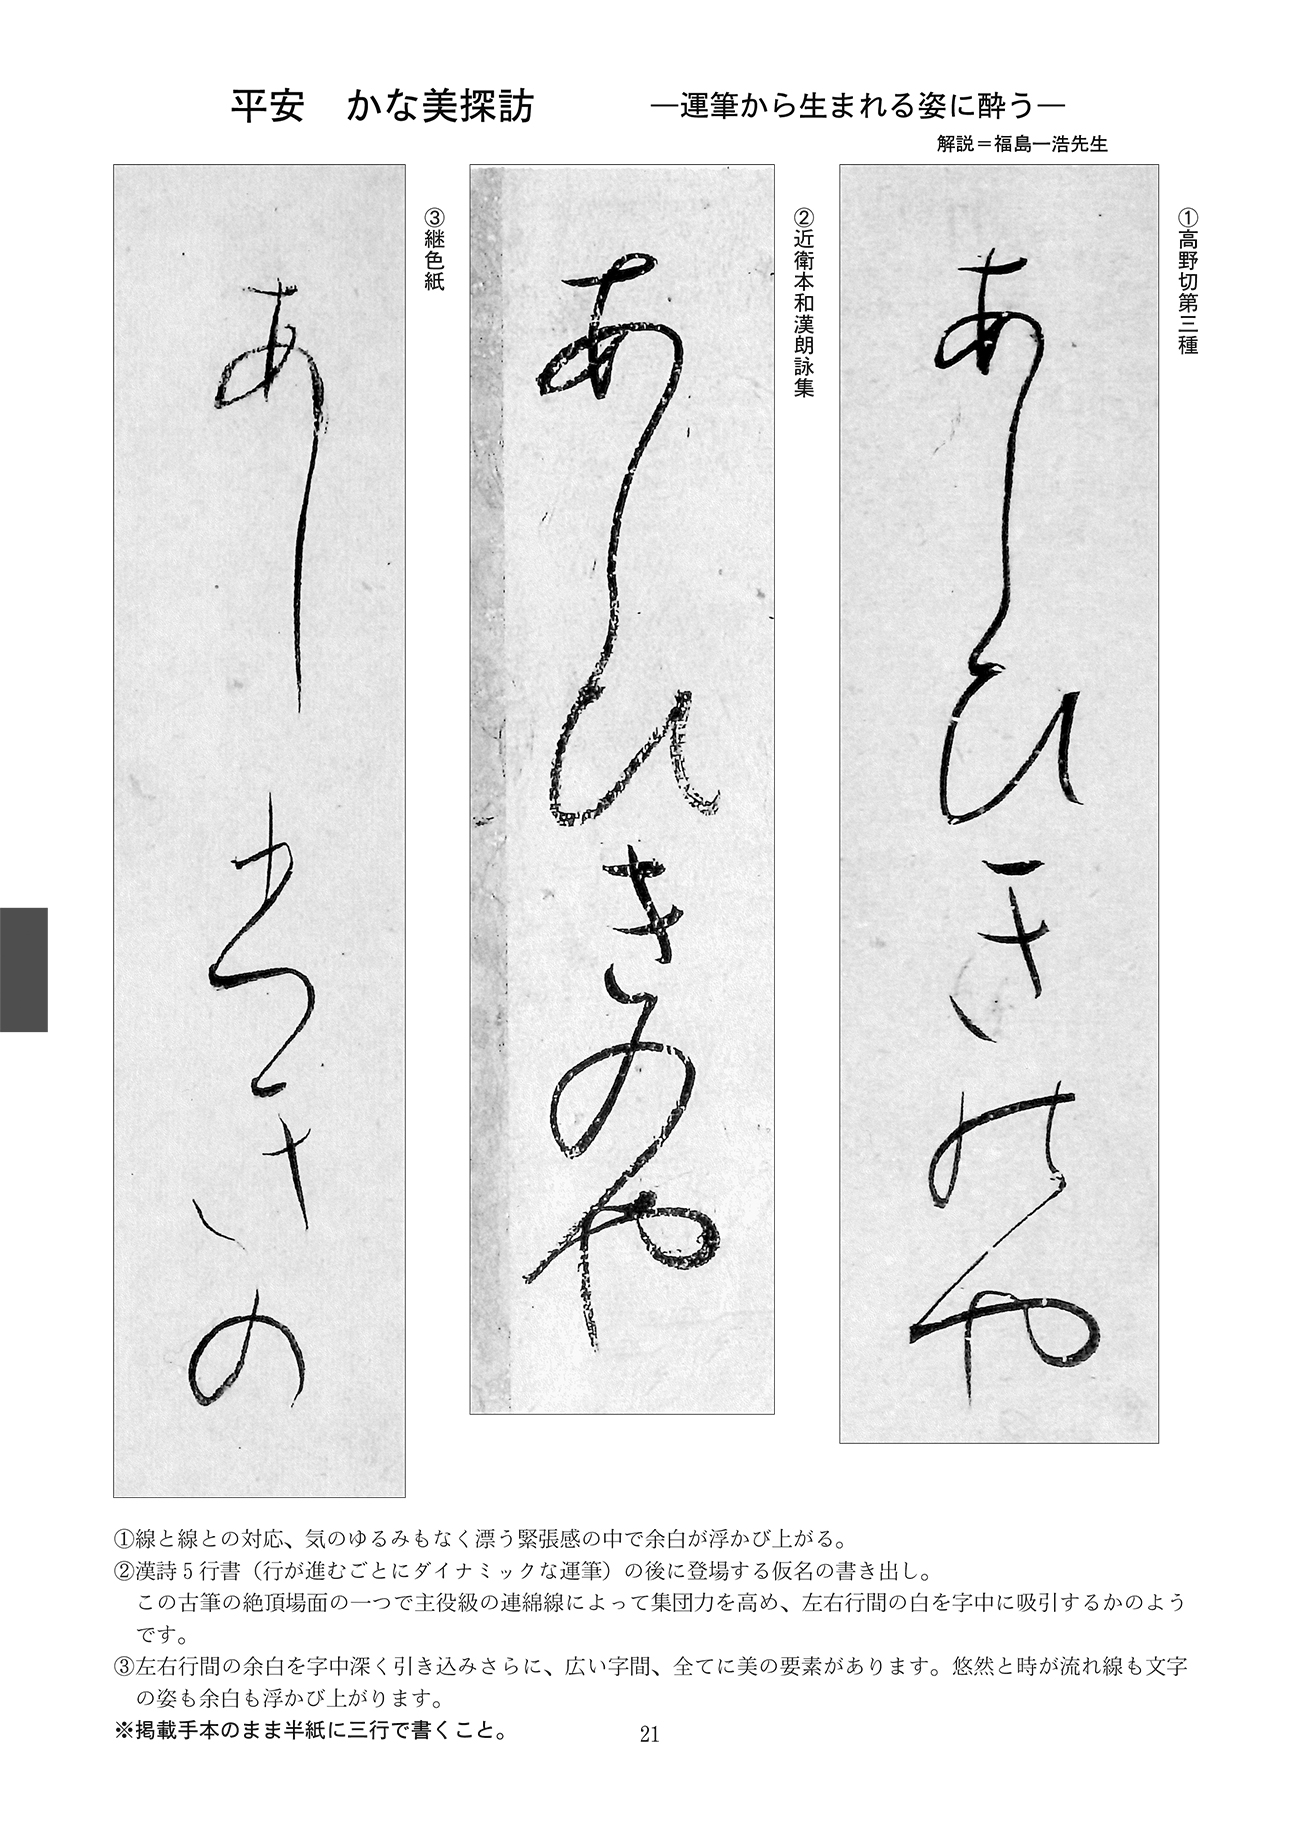 平安　かな美探訪　―運筆から生まれる姿に酔う―
解説＝福島一浩先生
①高野切第三種
あしひきのや
②近衛本和漢朗詠集
あしひきのや
③継色紙
あしひきの
①線と線との対応、気のゆるみもなく漂う緊張感の中で余白が浮かび上がる。
②漢詩5行書（行が進むごとにダイナミックな運筆）の後に登場する仮名の書き出し。
この古筆の絶頂場面の一つで主役級の連綿線によって集団力を高め、左右行間の白を字中に吸引するかのよう
です。
③左右行間の余白を字中深く引き込みさらに、広い字間、全てに美の要素があります。悠然と時が流れ線も文字
の姿も余白も浮かび上がります。
※掲載手本のまま半紙に三行で書くこと。
21